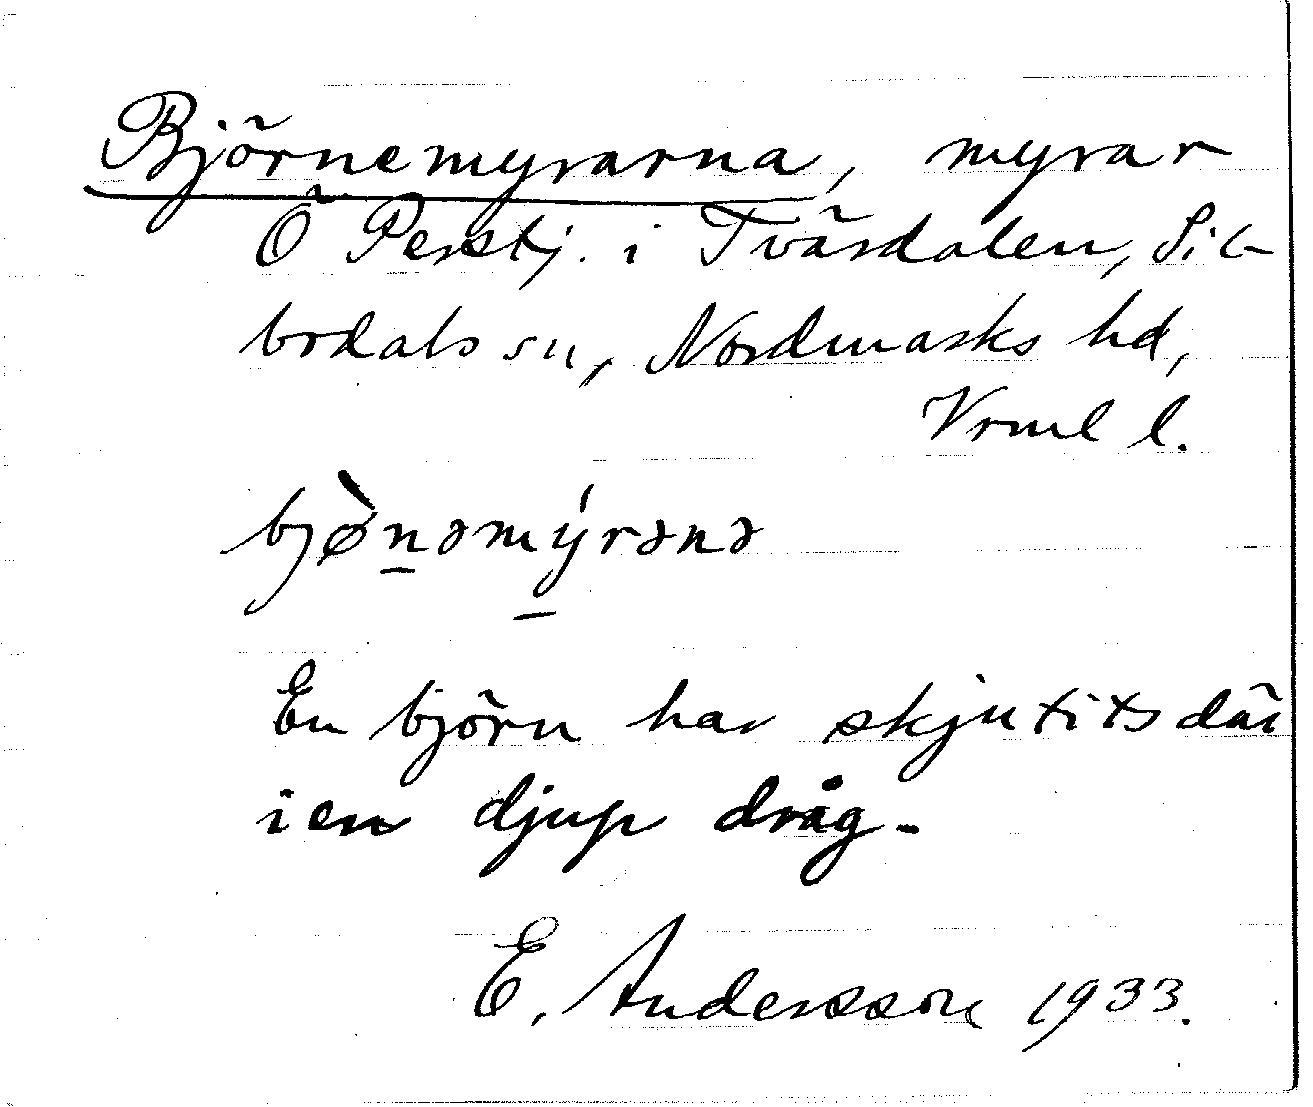 Björnemyrarna, myrar
Ö Perstj. i Tvärdalen, Sil-
bodals sn, Nordmarks hd,
Vrml l.
bjø̀nəmýrənə
En björn har skjutits där
i en djup dråg.
E. Andersson 1933.